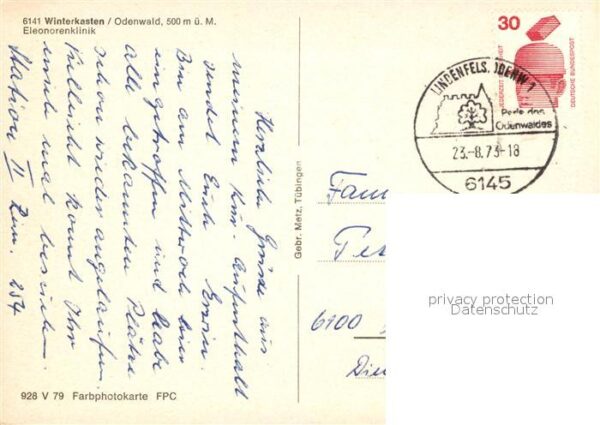 6141 Winterkasten / Odenwald, 500 m ü. M.
Eleonorenklinik
Herzliche Grüsse aus
meinem Kur-Aufenthalt
sendet Euch
Bin am Mittwoch hier
eingetroffen und habe
alle bekannten Plätze
schon wieder angelaufen.
Vielleicht kommt Ihr
mich mal besuchen.
Station II Zim. 254
928 V 79 Farbphotokarte FPC
Gebr. Metz, Tübingen
30
JEDERZEIT SICHERHEIT
DEUTSCHE BUNDESPOST
LINDENFELS, ODENW 1
Perle des
Odenwaldes
23.-8.73-18
6145
Fam
Pet
6100
Die
privacy protection
Datenschutz